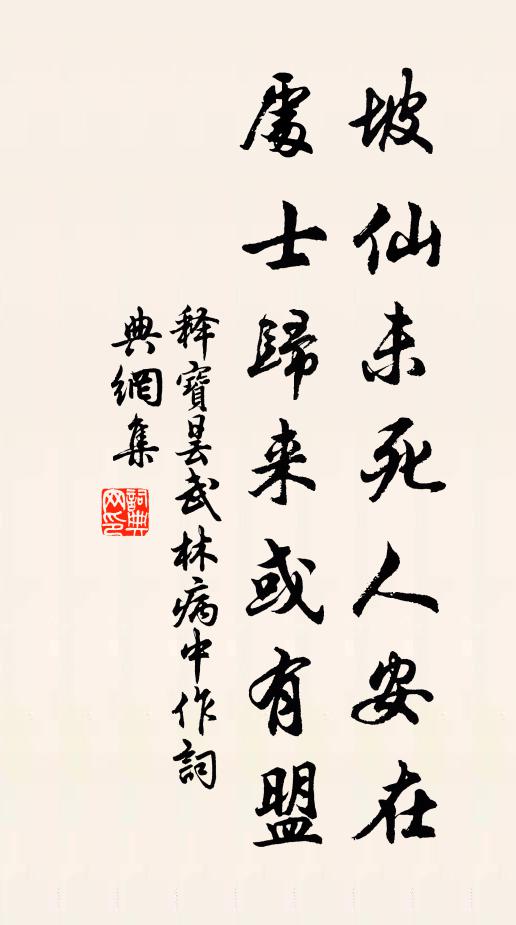 坡仙未死人安在
處士歸来或有盟
释寶昙武林病中作詞
典網集
詞典網印